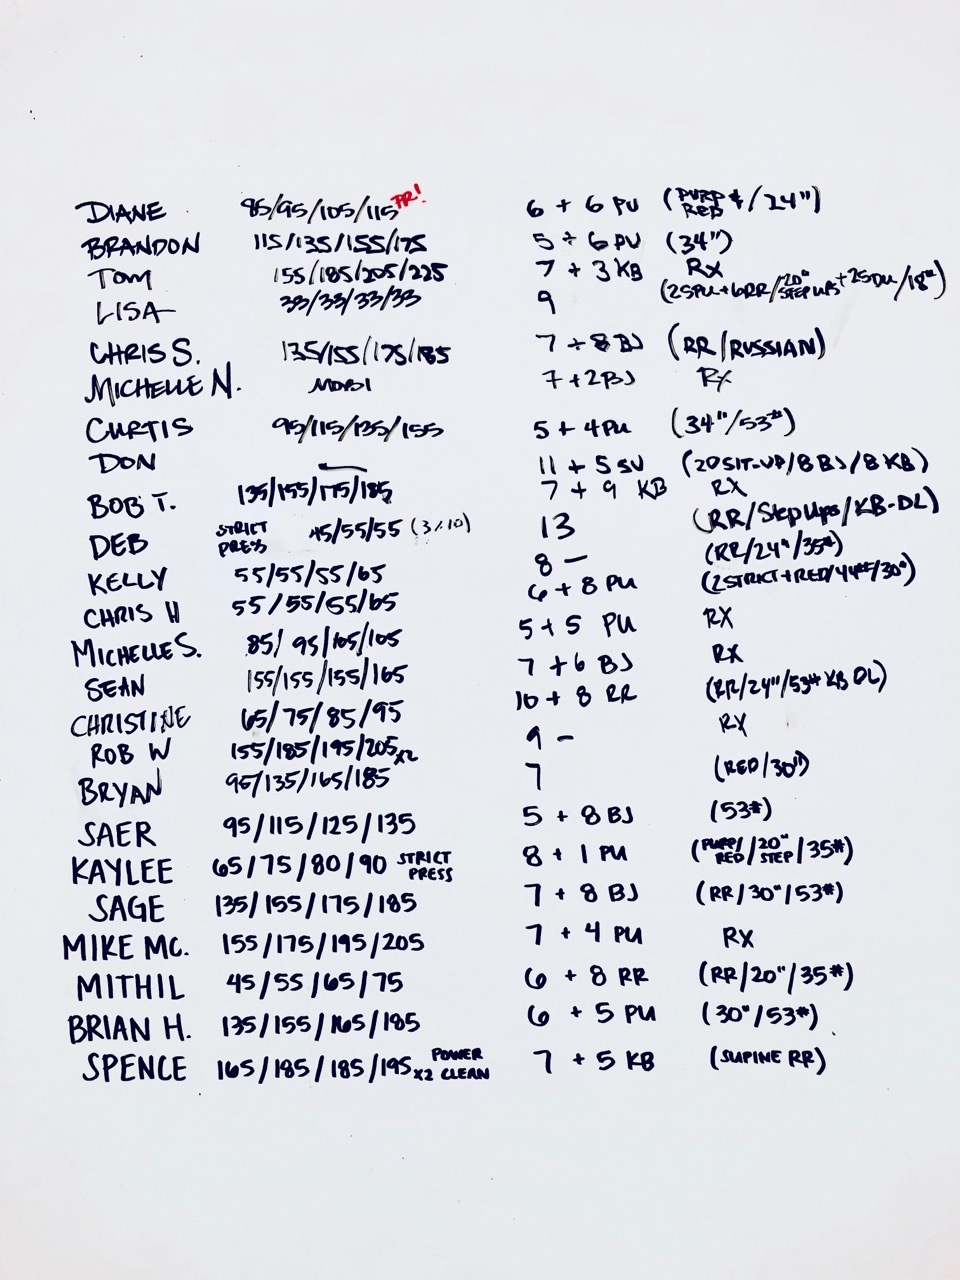 DIANE 85/95/105/115 PR! 6 + 6 PU (PURP & RED / 24")
BRANDON 115/135/155/175 5 + 6 PU (34")
TOM 155/185/205/225 7 + 3 KB RX
LISA 33/33/33/33 9 (25PU+6RR/20" STEP UPS+25DU/18#)
CHRIS S. 135/155/175/185 7 + 8 BJ (RR/RUSSIAN)
MICHELLE N. MOBI 7 + 2 BJ RX
CURTIS 95/115/135/155 5 + 4 PU (34"/53#)
DON — 11 + 5 SU (20 SIT-UP/8 BJ/8 KB)
BOB T. 135/155/175/185 7 + 9 KB RX
DEB STRICT PRESS 45/55/55 (3x10) 13 (RR/Step Ups/KB-DL)
KELLY 55/55/55/65 8 – (RR/24"/35#)
CHRIS H 55/55/55/65 6 + 8 PU (2STRICT+RED/44#/30")
MICHELLE S. 85/95/105/105 5 + 5 PU RX
SEAN 155/155/155/165 7 + 6 BJ RX
CHRISTINE 65/75/85/95 10 + 8 RR (RR/24"/53# KB DL)
ROB W 155/185/195/205 x2 9 – RX
BRYAN 95/135/165/185 7 (RED/30")
SAER 95/115/125/135 5 + 8 BJ (53#)
KAYLEE 65/75/80/90 STRICT PRESS 8 + 1 PU (PURP/RED/20" STEP/35#)
SAGE 135/155/175/185 7 + 8 BJ (RR/30"/53#)
MIKE MC. 155/175/195/205 7 + 4 PU RX
MITHIL 45/55/65/75 6 + 8 RR (RR/20"/35#)
BRIAN H. 135/155/165/185 6 + 5 PU (30"/53#)
SPENCE 165/185/185/195 x2 POWER CLEAN 7 + 5 KB (SUPINE RR)